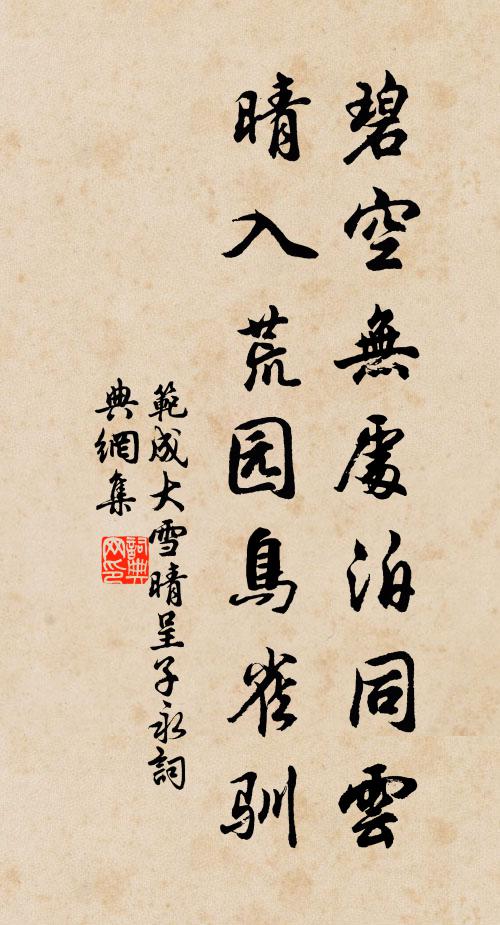 碧空無處泊同雲
晴入荒园鳥雀馴
範成大雪晴呈子永詞
典網集
詞典
网印